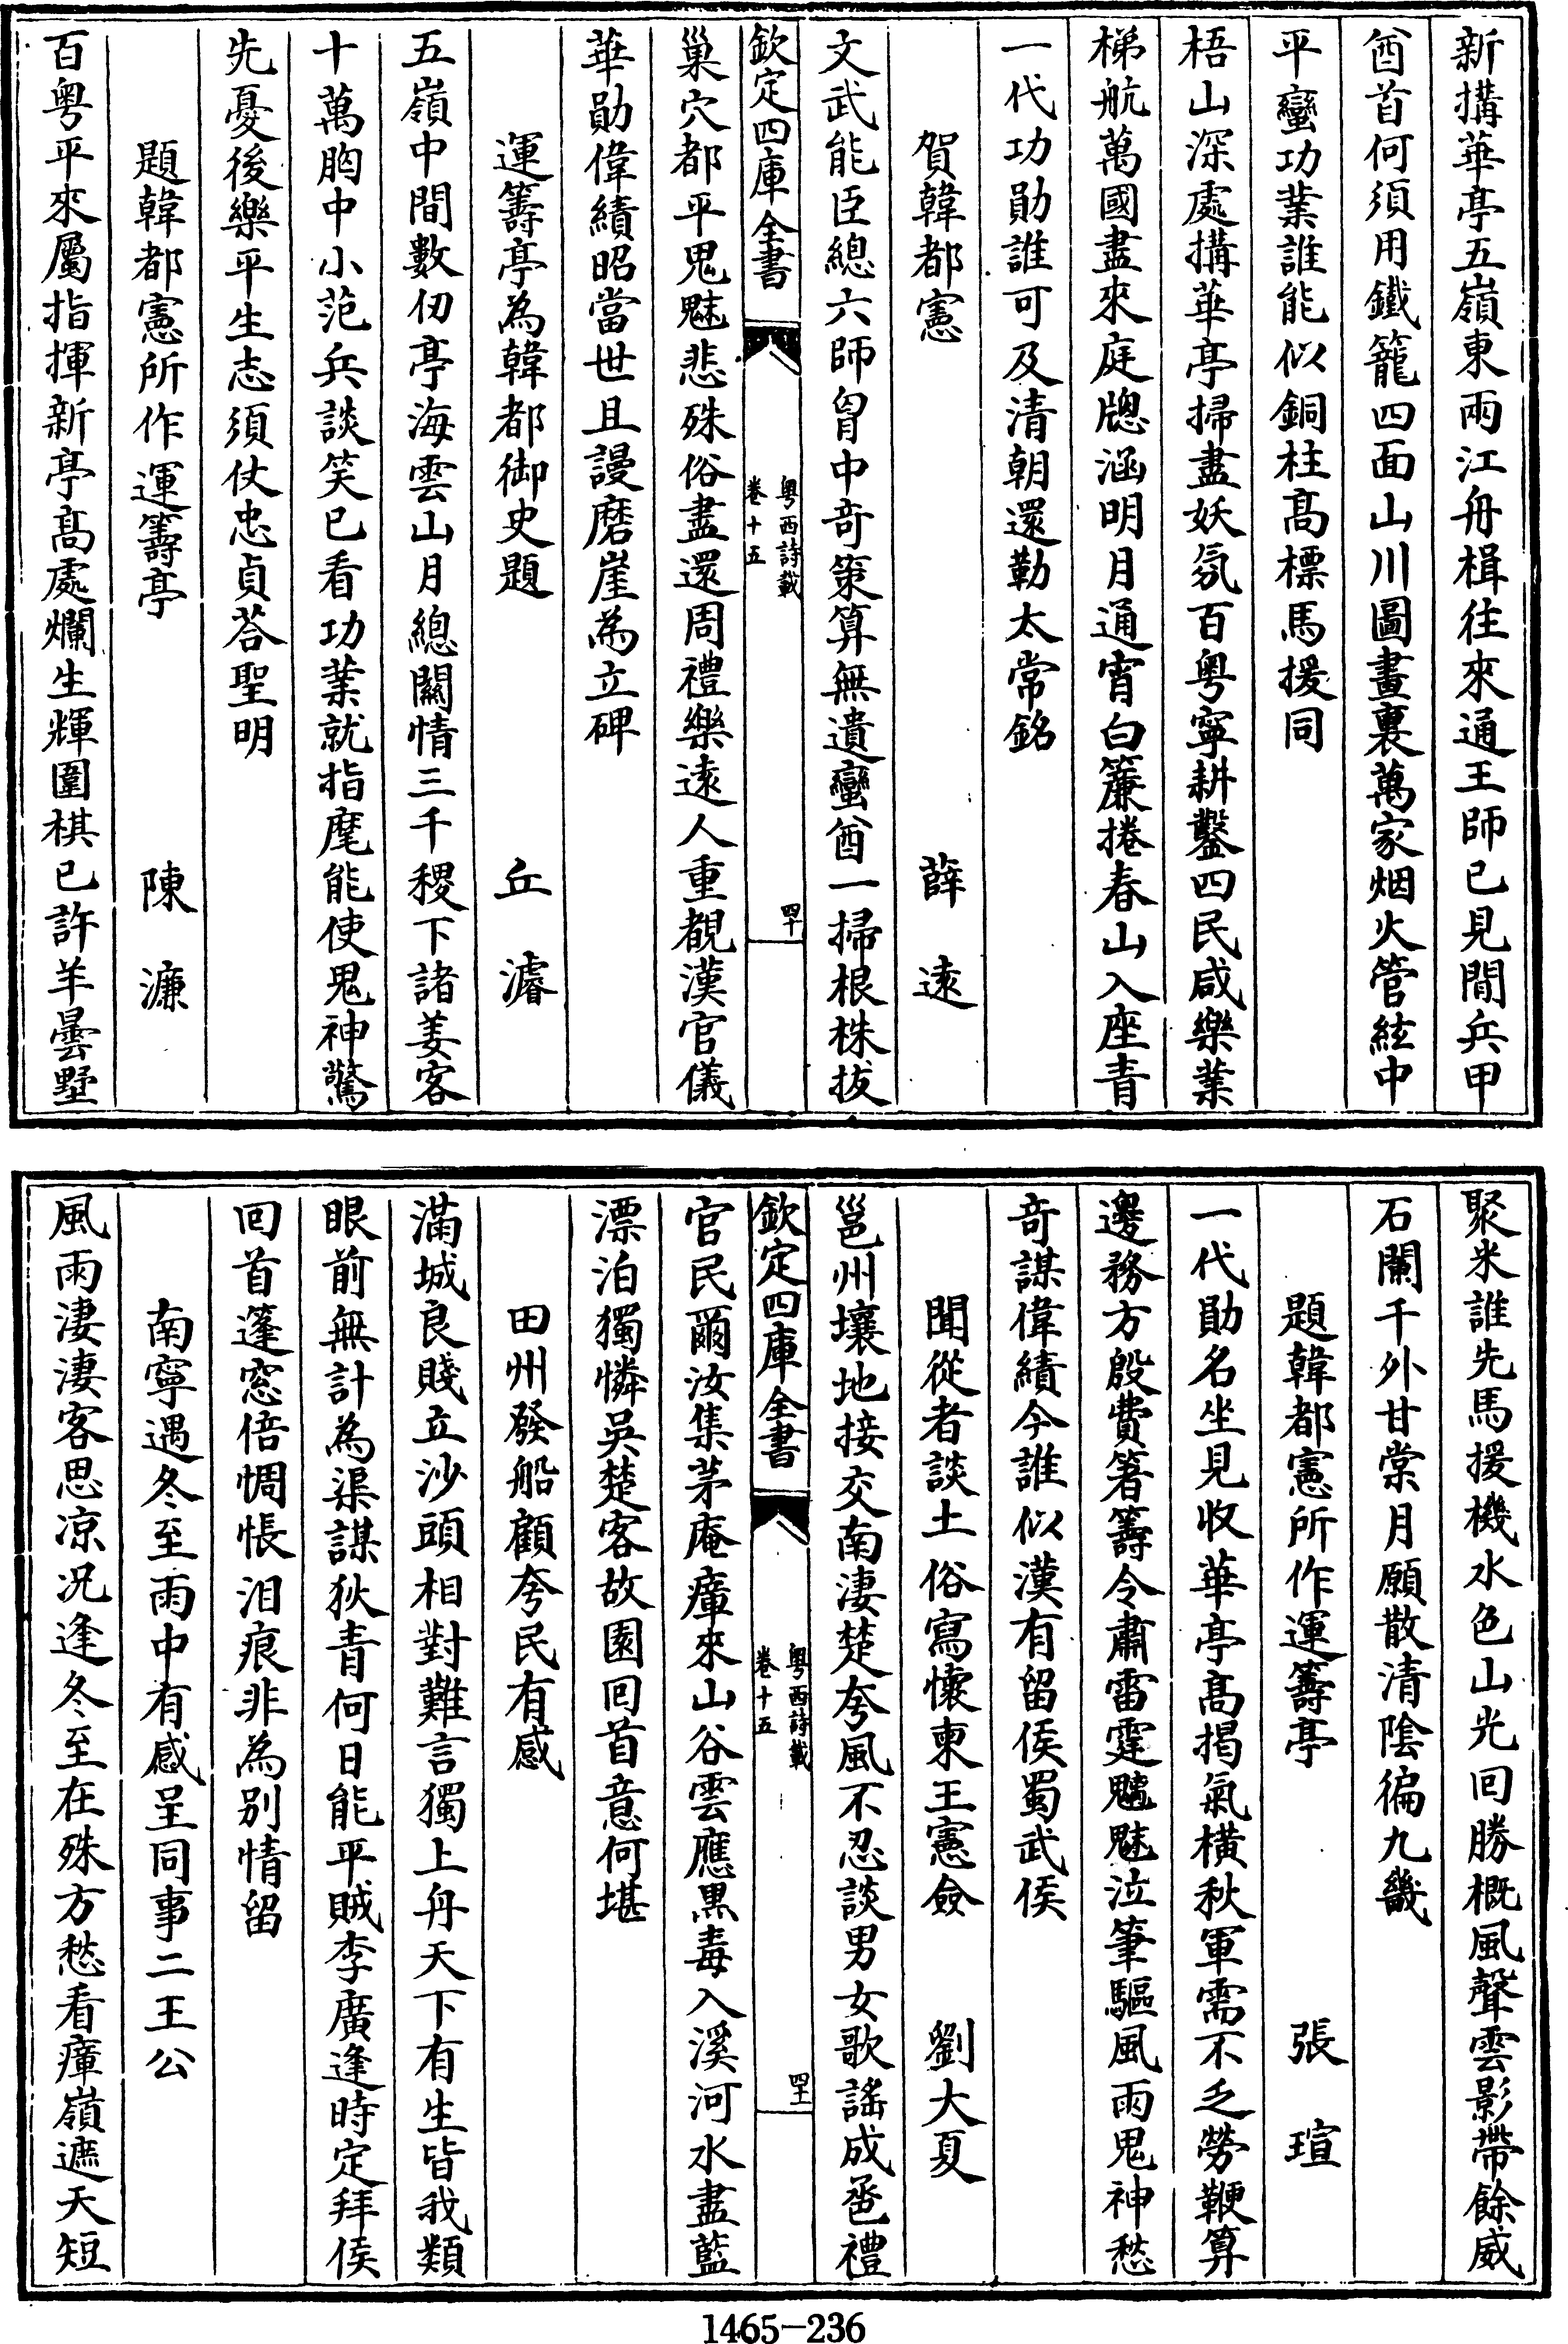 新搆華亭五嶺東兩江舟楫往來通王師已見閒兵甲
酋首何須用鐵籠四面山川圖畫裏萬家烟火管絃中
平蠻功業誰能似銅柱髙標馬援同
梧山深處搆華亭掃盡妖氛百粤寧耕鑿四民咸樂業
梯航萬國盡來庭牕涵明月通宵白簾捲春山入座青
一代功勛誰可及清朝還勒太常銘
賀韓都憲　薛逺
文武能臣總六師胷中奇策算無遺蠻酋一掃根株拔
欽定四庫全書
粤西詩載
卷十五
四十
巢穴都平鬼魅悲殊俗盡還周禮樂逺人重覩漢官儀
華勛偉績昭當世且謾磨崖為立碑
運籌亭為韓都御史題　丘濬
五嶺中間數仞亭海雲山月總闗情三千稷下諸姜客
十萬胸中小范兵談笑已看功業就指麾能使鬼神驚
先憂後樂平生志須仗忠貞荅聖明
題韓都憲所作運籌亭　陳濂
百粤平來屬指揮新亭髙處爛生輝圍棋已許羊曇墅
聚米誰先馬援機水色山光回勝概風聲雲影帶餘威
石闌干外甘棠月願散清陰徧九畿
題韓都憲所作運籌亭　張瑄
一代勛名坐見收華亭髙揭氣横秋軍需不乏勞鞭算
邊務方殷費箸籌令肅雷霆魑魅泣筆驅風雨鬼神愁
奇謀偉績今誰似漢有留侯蜀武侯
聞從者談土俗寫懷柬王憲僉　劉大夏
邕州壤地接交南淒楚夸風不忍談男女歌謡成卺禮
欽定四庫全書
粤西詩載
卷十五
四十一
官民爾汝集茅庵瘴來山谷雲應黒毒入溪河水盡藍
漂泊獨憐吳楚客故園回首意何堪
田州發船顧夸民有感
滿城良賤立沙頭相對難言獨上舟天下有生皆我類
眼前無計為渠謀狄青何日能平賊李廣逢時定拜侯
回首篷窓倍惆悵泪痕非為别情留
南寧遇冬至雨中有感呈同事二王公
風雨淒淒客思凉况逢冬至在殊方愁看瘴嶺遮天短
1465-236